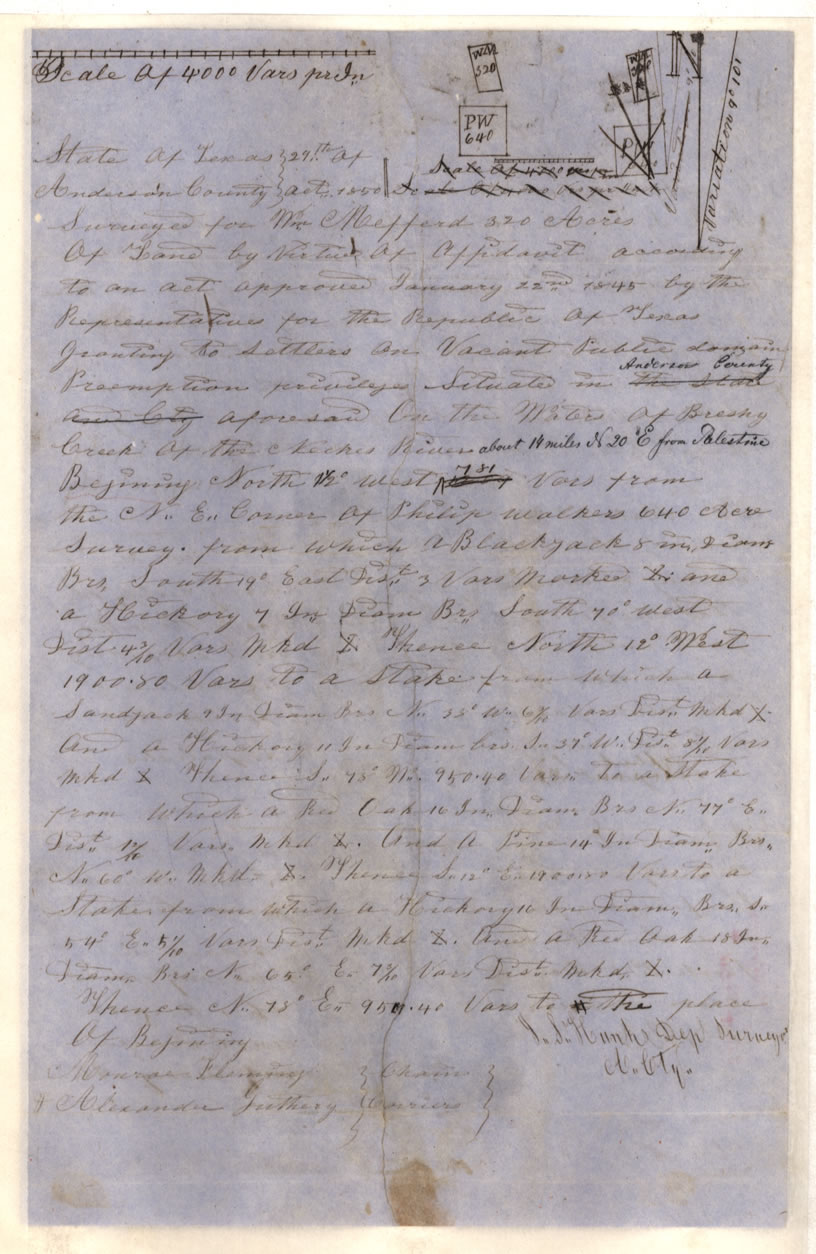 Scale Of 4000 Vars pr In
WM 320
PW 640
PW
N
Variation 9° 101
State Of Texas } 29th Of
Anderson County } Oct 1850
Surveyed for Wm Mefferd 320 Acres
Of Land by Virtue Of Affidavit according
to an act approved January 22nd 1845 by the
Representatives for the Republic Of Texas
granting to settlers On Vacant Public domain
Anderson County
Preemption privileges Situated in the State
and Cty aforesaid On the Waters Of Breshy
Creek Of the Neches River about 14 miles N 20° E from Palestine
781
Begining North 12° West Vars from
the N,, E,, Corner Of Philip Walkers 640 Acre
Survey. from which a Blackjack 8 in, Diam
Brs, South 19° East Dist 3 Vars Marked X and
a Hickory 7 In Diam Brs South 70° West
Dist 4 Vars Mkd X Thence North 12° West
1900.80 Vars to a Stake from which a
Sandjack 9 In Diam Brs N. 35° W. Vars Dist Mkd X
And a Hickory 11 In Diam brs. S. 37° W. Dist Vars
Mkd X Thence S. 78° W. 950.40 Vars to a Stake
from which a Red Oak 16 In, Diam, Brs N. 77° E.
Dist Vars, Mkd X. And A Pine 14 In Diam,, Brs,,
N. 60° W,, Mkd X. Thence S. 12° E. 1900.80 Vars to a
Stake from which a Hickory 16 In Diam,, Brs, S.
54° E. 5 Vars Dist Mkd X. And a Red Oak 18 In,,
Diam,, Brs N. 65° E. 7 Vars Dist Mkd, X.
Thence N. 78° E. 950.40 Vars to the place
Of Begining
Hanks Dep Surveyor
A. Cty.
Monroe Fleming } Chain }
Alexander Guthery } Carriers }